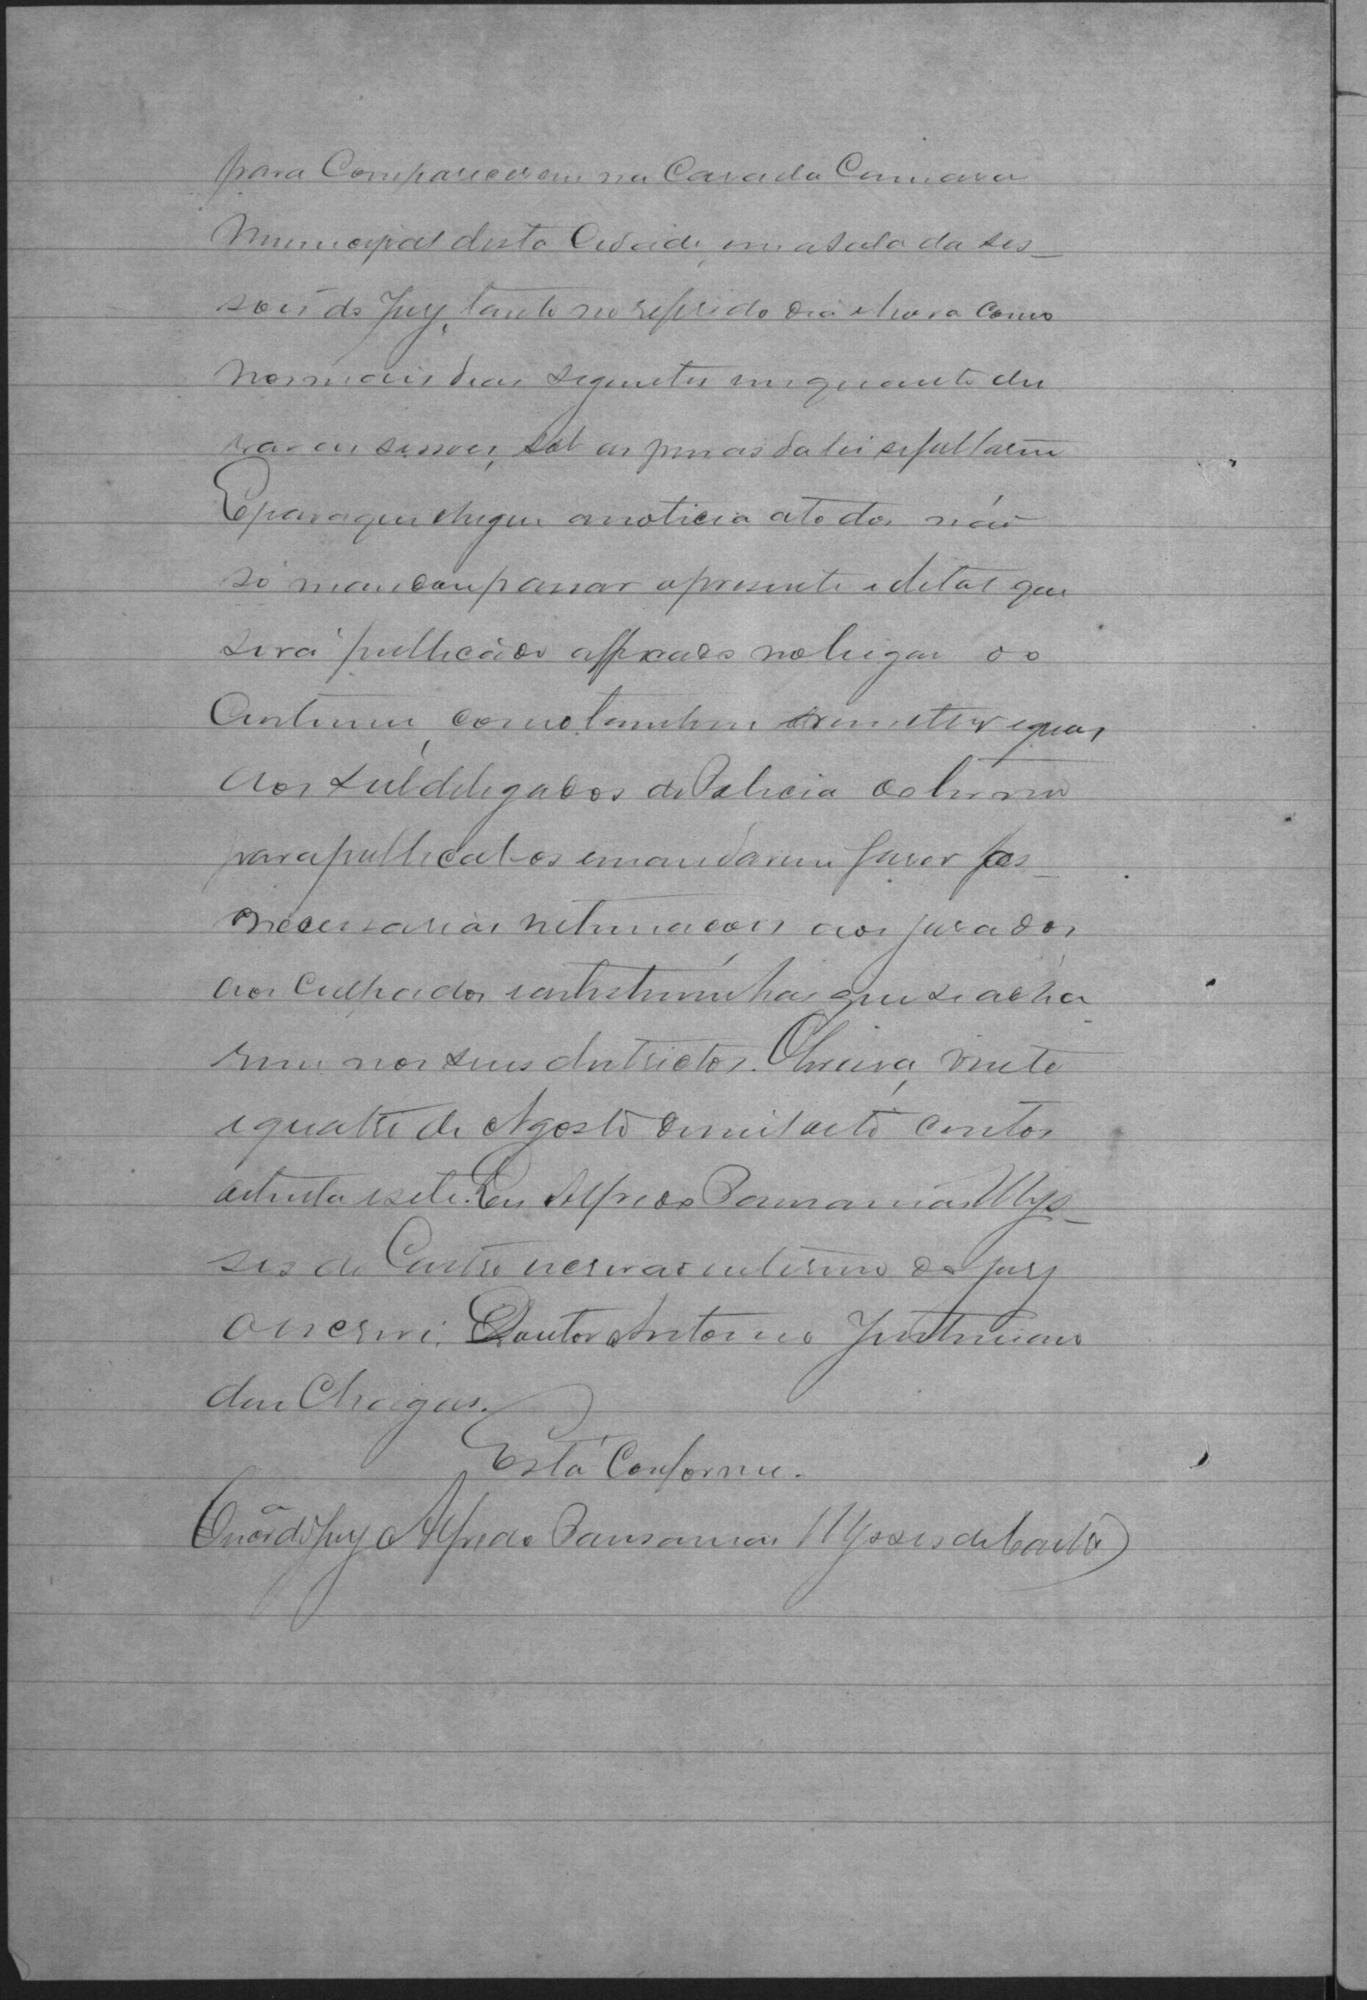 para Comparecerem na Casa da Camara
Municipal desta Cidade, em a sala da ses_
sões do Jury, tanto no referido dia e hora como
nos mais dias seguintes em quanto du
rar as sessoes, sob as penas da lei se faltarem
E para que chegue a noticia a todos não
só mandou passar o presente edital que
será publicado affixado no lugar do
Custume, como tambem remetter iguaes
aos Subdelegados de Policia do termo
para publical-os e mandarem fazer as_
necessarias netimações aos jurados
aos Culpados e as testemunhas que se acha
rem nos seus districtos. Oliveira, vinte
e quatro de Agosto de mil oito centos
oitenta e sete. Eu Alfredo Pausanias Ulys_
ses de Castro escrivão interino do jury
o escrevi. Doutor Antonio Justiniano
das Chagas.
Está Conforme.
Escrivão do Jury Alfredo Pausanias Ulysses de Castro